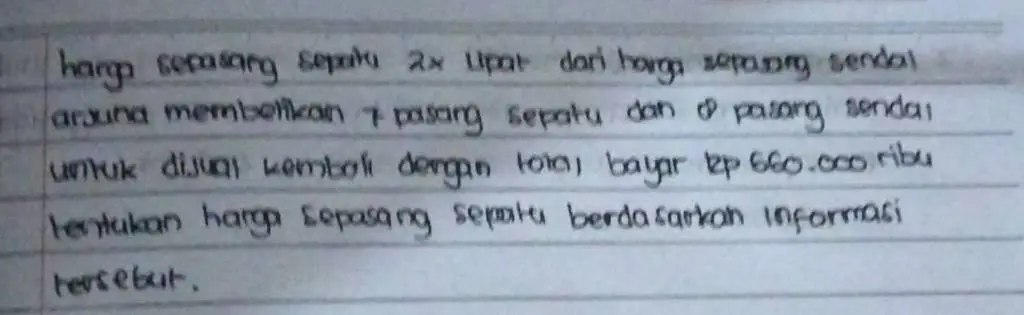 harga sepasang sepatu 2x lipat dari harga sepasang sendal
arjuna membelikan 7 pasang sepatu dan 8 pasang sendal
untuk dijual kembali dengan total bayar Rp 660.000 ribu
tentukan harga sepasang sepatu berdasarkan informasi
tersebut.